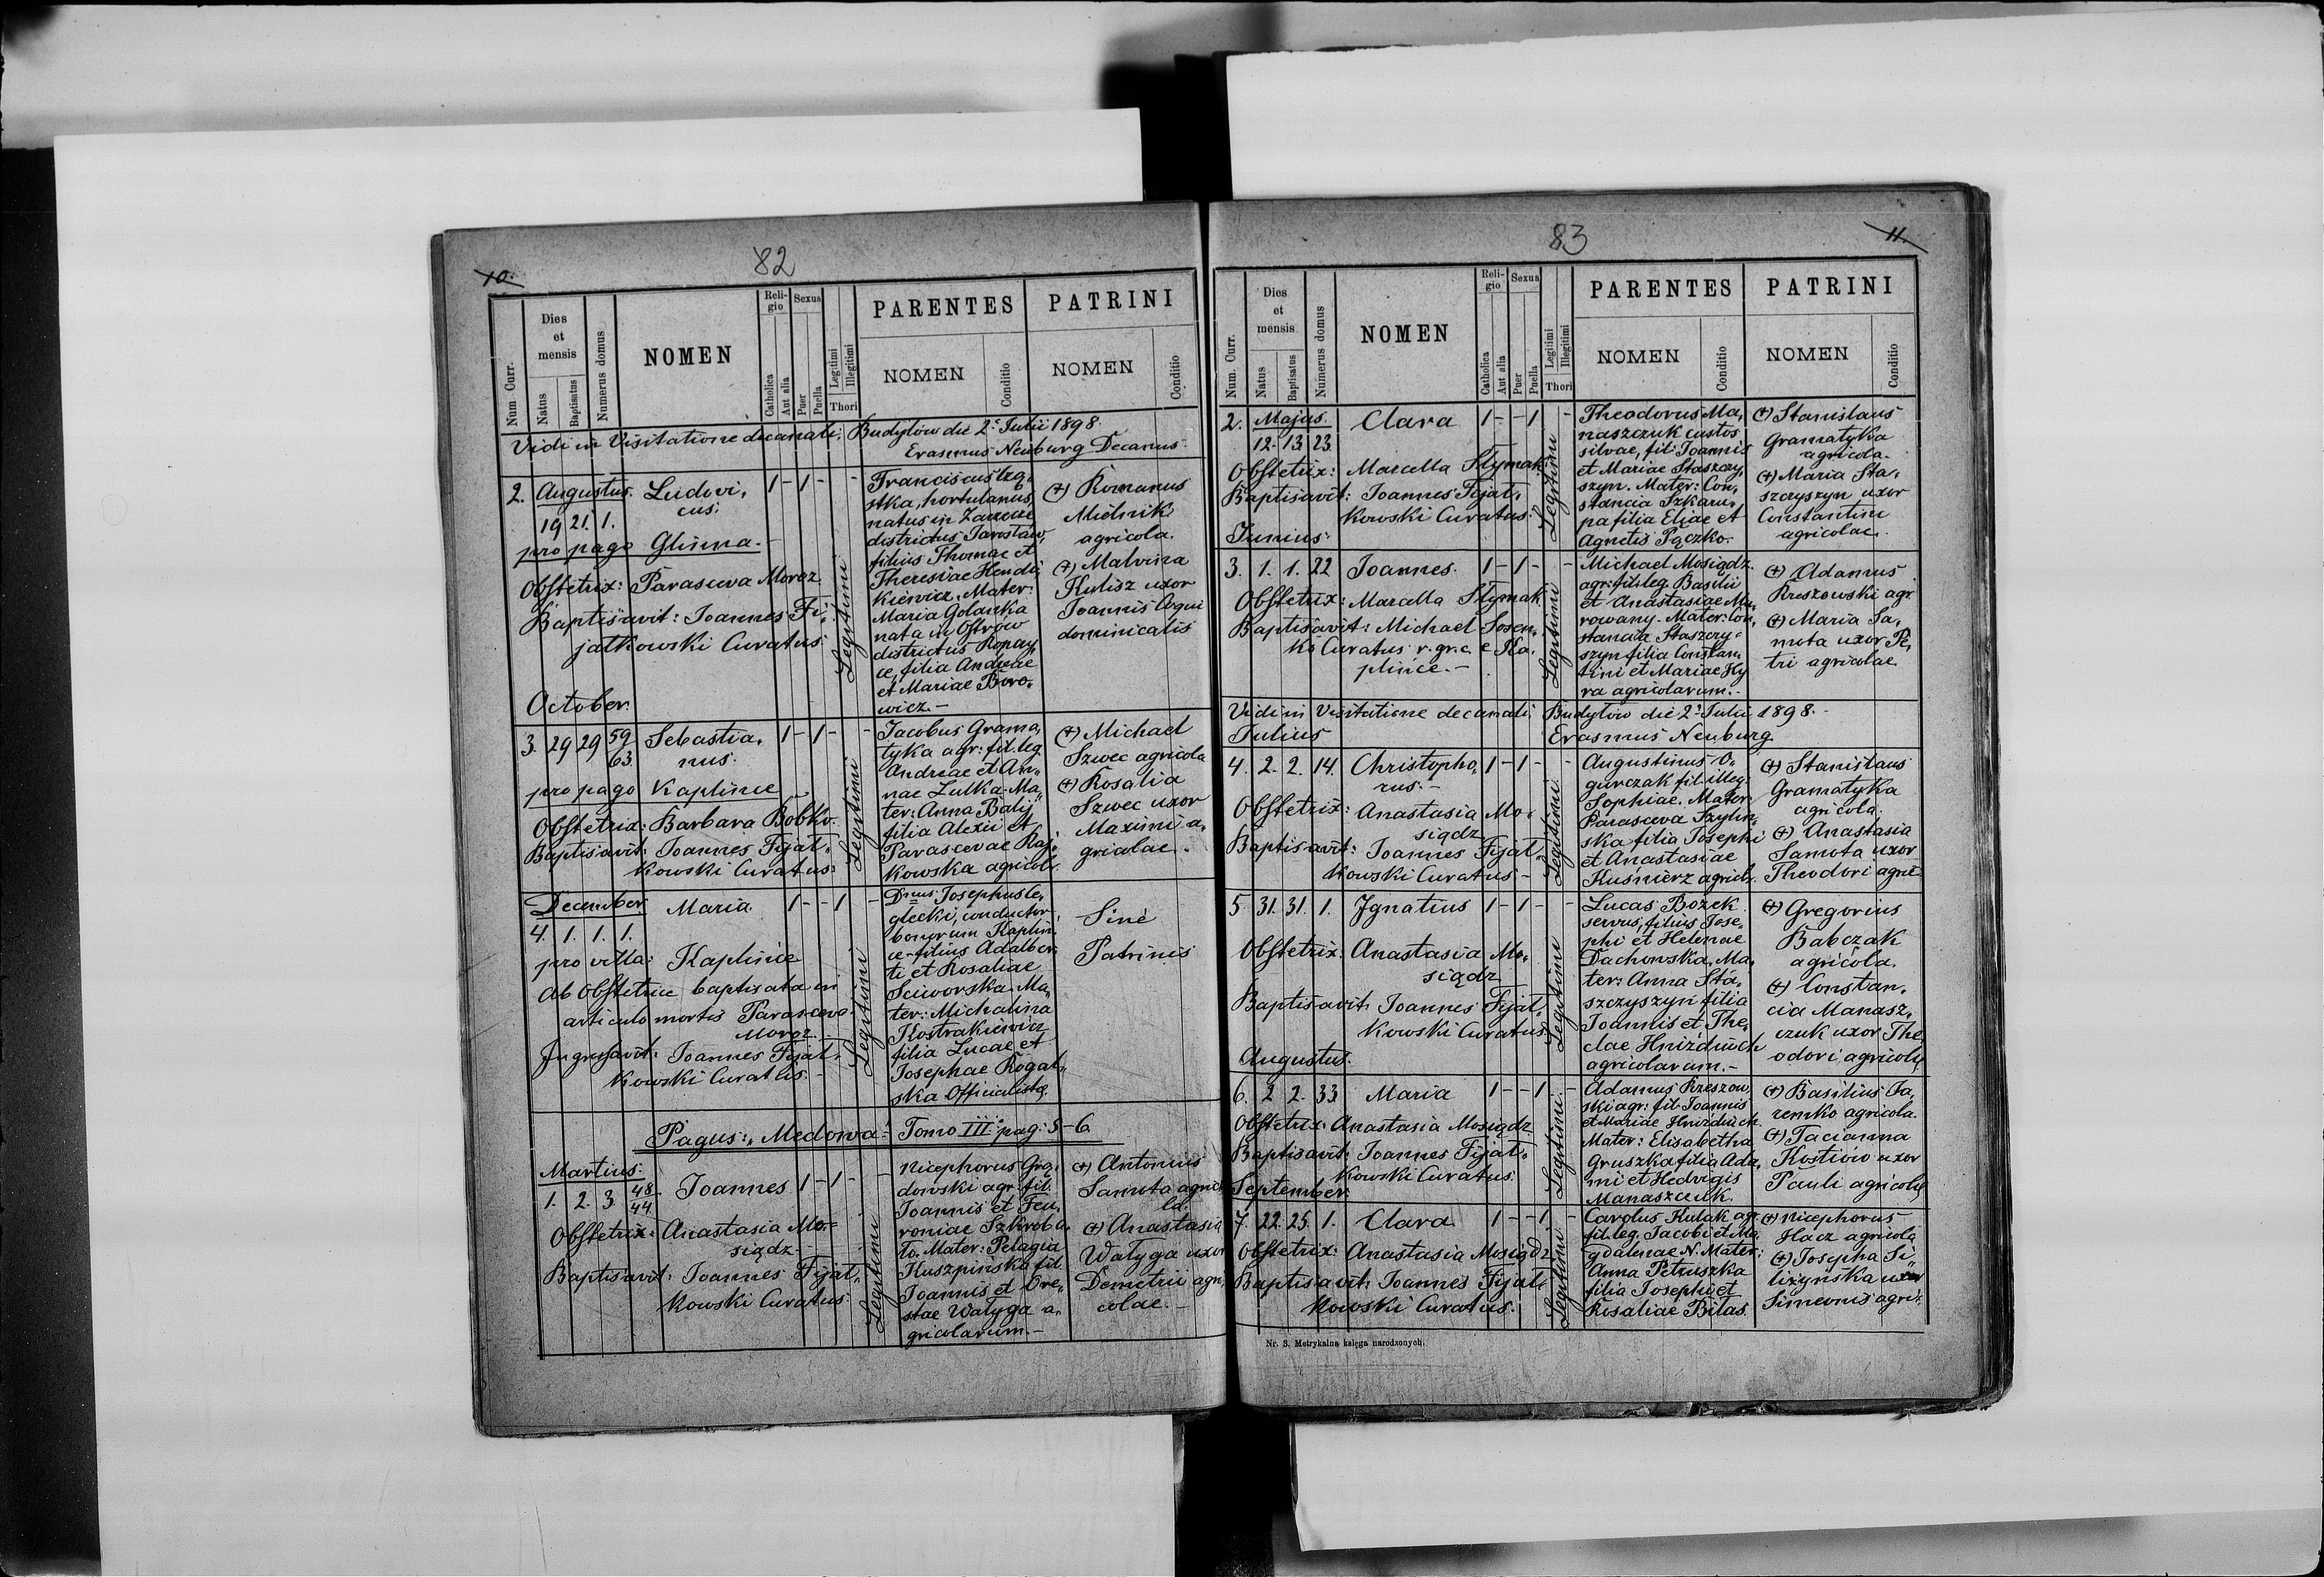 10.
82
Num Curr.
Dies et mensis
Natus
Baptisatus
Numerus domus
NOMEN
Religio
Catholica
Aut alia
Sexus
Puer
Puella
Legitimi
Illegitimi
Thori
PARENTES
NOMEN
Conditio
PATRINI
NOMEN
Conditio
Vidi in Visitatione decanali, Budyłów die 2. Julii 1898.
Erasmus Neuburg Decanus.
2. Augustus. Ludovi,
cus.
19 21. 1.
1 - 1 - -
pro pago Glinna.-
Obstetrix: Parasceva Moroz.
Baptisavit: Joannes Fi,
jałkowski Curatus.
Legitimi
Franciscus
stka, hortulanus,
natus in Zarzecze
districtus Jarosław,
filius Thomae et
Theresiae Hendi,
kiewicz. Mater:
Maria Golanka
nata in Ostrów
districtus Ropczy,
ce, filia Andreae
et Mariae Boro,
wicz.-
(+) Romanus
Mielnik
agricola.
(+) Malvina
Kulisz uxor
Joannis Coqui
dominicalis
October.
3. 29 29 59
63.
Sebastia,
nus.
1 - 1 - -
pro pago Kaplince
Obstetrix: Barbara Bobko.
Baptisavit: Joannes Fijał,
kowski Curatus.
Legitimi
Jacobus Grama,
tyka agr: fil. leg.
Andreae et An,
nae Lulka. Ma,
ter: Anna Balij
filia Alexii et
Parascevae Raj,
kowska agricol.
(+) Michael
Szwec agricola
(+) Rosalia
Szwec uxor
Maximi a,
gricolae.
December.
4. 1. 1. 1.
Maria. 1 - - 1 -
pro villa: Kaplince
Ab Obstetrice baptisata in
articulo mortis Parasceva
Moroz.-
Ingressavit: Joannes Fijał,
kowski Curatus.
Legitimi
Dnus Josephus Ce,
glecki, conductor
bonorum Kaplin,
ce - filius Adalber,
ti et Rosaliae
Sciworska. Ma,
ter: Michalina
Kostrakiewicz
filia Lucae et
Josephae Rogal,
ska Officialista.
Sine
Patrinis
Pagus: „Medowa" - Tomo III. pag: 5-6.
Martius.
1. 2. 3. 48
44
Joannes 1 - 1 - -
Obstetrix: Anastasia Mo,
siądz
Baptisavit: Joannes Fijał,
kowski Curatus.
Legitimi
Nicephorus Grą,
dowski agr. fil.
Joannis et Feu,
roniae Szkroba,
to. Mater: Pelagia
Kuszpińska fil.
Joannis et Ore,
stae Watyga a,
gricolarum.-
(+) Antonius
Samota agric,
la.
(+) Anastasia
Watyga uxor
Demetrii agri,
colae.-
83
11.
Num. Curr.
Dies et mensis
Natus
Baptisatus
Numerus domus
NOMEN
Religio
Catholica
Aut alia
Sexus
Puer
Puella
Legitimi
Illegitimi
Thori
PARENTES
NOMEN
Conditio
PATRINI
NOMEN
Conditio
2. Majus. Clara 1 - - 1 -
12. 13 23.
Obstetrix: Marcella Slymak
Baptisavit: Joannes Fijał,
kowski Curatus.
Legitimi
Theodorus Ma,
naszczuk custos
silvae, fil. Joannis
et Mariae Staszczy,
szyn. Mater: Con,
stancia Szkaru,
pa filia Eliae et
Agnetis Pączko.-
(+) Stanislaus
Gramatyka
agricola.-
(+) Maria Sta,
szczyszyn uxor
Constantini
agricolae.
Junius.
3. 1. 1. 22 Joannes. 1 - 1 - -
Obstetrix: Marcella Slymak
Baptisavit: Michael Sosen,
ko Curatus r. gr. c. e Ka,
plince.-
Legitimi
Michael Mosiądz.
agr. fil. leg. Basilii
et Anastasiae Mu,
rowany. Mater: Con,
stancia Staszczy-
szyn filia Constan,
tini et Mariae Hy
ra agricolarum.-
(+) Adamus
Rzeszowski agr
(+) Maria Sa,
mota uxor Pe,
tri agricolae
Vidi in Visitatione decanali, Budyłów die 2. Julii 1898.-
Erasmus Neuburg
Julius
4. 2. 2. 14. Christopho,
rus.-
1 - 1 - -
Obstetrix: Anastasia Mo,
siądz
Baptisavit: Joannes Fijał,
kowski Curatus-
Legitimi
Augustinus O,
gurczak fil. illeg.
Sophiae. Mater:
Parasceva Szylin,
ska filia Josephi
et Anastasiae
Kuśnierz agricol.
(+) Stanislaus
Gramatyka
agricola.
(+) Anastasia
Samota uxor
Theodori agric
5. 31. 31. 1. Ignatius 1 - 1 - -
Obstetrix: Anastasia Mo,
siądz
Baptisavit: Joannes Fijał,
kowski Curatus.
Legitimi
Lucas Bożek
servus, filius Jose,
phi et Helenae
Dachowska. Ma,
ter: Anna Sta,
szczyszyn filia
Joannis et The,
clae Hnizdiuch
agricolarum.-
(+) Gregorius
Babczak
agricola.
(+) Constan,
cia Manasz,
czuk uxor The,
odori agricolę
Augustus.
6. 2. 2. 33 Maria 1 - - 1 -
Obstetrix: Anastasia Mosiądz
Baptisavit: Joannes Fijał,
kowski Curatus.
Legitimi
Adamus Rzeszow,
ski agr: fil. Joannis
et Mariae Hnizdiuch.
Mater: Elisabetha
Gruszka filia Ada,
mi et Hedvigis
Manaszczuk.
(+) Basilius Ja,
remko agricola.
(+) Tacianna
Kostiów uxor
Pauli agricolę
September.
7. 22. 25. 1. Clara 1 - - 1 -
Obstetrix: Anastasia Mosiądz
Baptisavit: Joannes Fijał,
kowski Curatus.
Legitimi
Carolus Kulak agr.
fil. leg. Jacobi et Ma,
gdalenae N. Mater:
Anna Petruszka
filia Josephi et
Rosaliae Bilas.
(+) Nicephorus
Hacz agricola
(+) Josepha Si,
liżyńska uxor
Simeonis agric.
Nr. 3. Metrykalna księga narodzonych.